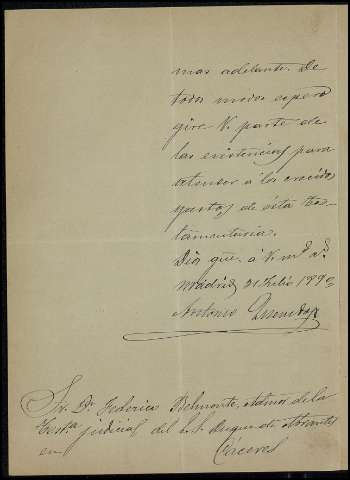 mas adelante. De
todos modos espero
gire V. parte de
las existencias para
atender á los crecidos
gastos de ésta Tes-
tamentaria.
Dios gue. á V. ms. as.
Madrid 21 Julio 189
Antonio
Sr. Dn. Federico Belmonte, Admor de la
Testa. judicial del E. S. Duque de Abrantes
en Cáceres